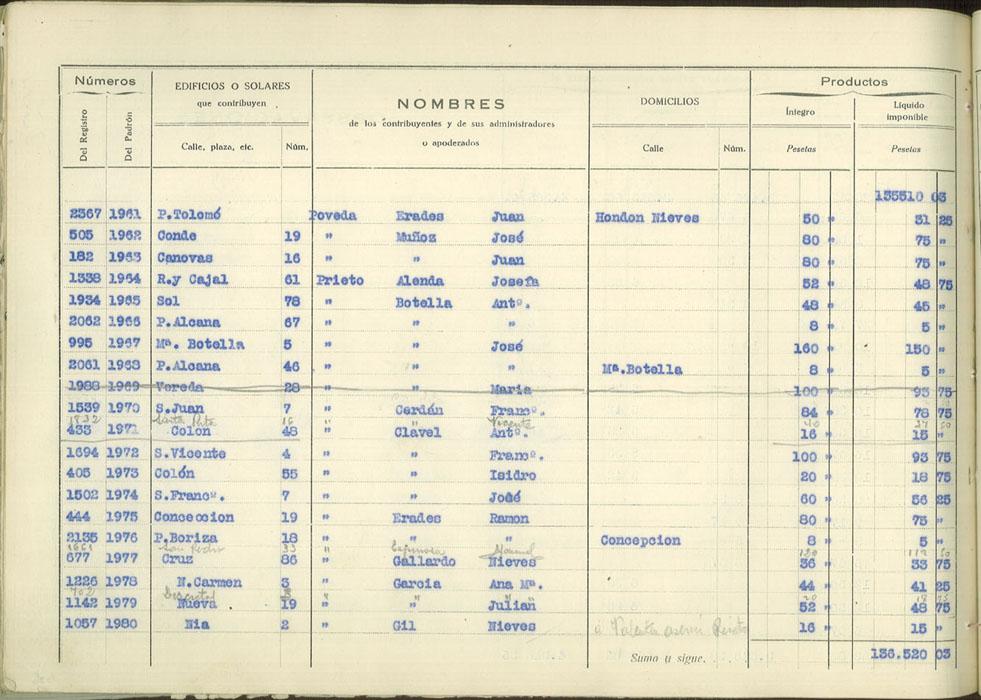 Números EDIFICIOS O SOLARES que contribuyen NOMBRES de los contribuyentes y de sus administradores o apoderados DOMICILIOS Productos
Del Registro Del Padrón Calle, plaza, etc. Núm. Calle Núm. Íntegro Pesetas Líquido imponible Pesetas
135510 03
2367 1961 P.Tolomó Poveda Erades Juan Hondon Nieves 50 " 31 25
505 1962 Conde 19 " Muñoz José 80 " 75 "
182 1963 Canovas 16 " " Juan 80 " 75 "
1338 1964 R.y Cajal 61 Prieto Alenda Josefa 52 " 48 75
1934 1965 Sol 78 " Botella Antº. 48 " 45 "
2062 1966 P.Alcana 67 " " " 8 " 5 "
995 1967 Mª. Botella 5 " " José 160 " 150 "
2061 1968 P.Alcana 46 " " " Mª.Botella 8 " 5 "
1988 1969 Vereda 28 " " Maria 100 " 93 75
1539 1970 S.Juan 7 " Cerdán Francº. 84 " 78 75
1832 Santa Rita 16 " " Vicente 40 37 50
433 1971 Colon 48 " Clavel Antº. 16 " 15 "
1694 1972 S.Vicente 4 " " Francº. 100 " 93 75
405 1973 Colón 55 " " Isidro 20 " 18 75
1502 1974 S.Francº. 7 " " José 60 " 56 25
444 1975 Concepcion 19 " Erades Ramon 80 " 75 "
2135 1976 P.Boriza 18 " " " Concepcion 8 " 5 "
1661 San Pedro 33 " Espinosa Manuel 120 112 50
677 1977 Cruz 86 " Gallardo Nieves 36 " 33 75
1226 1978 N.Carmen 3 " Garcia Ana Mª. 44 " 41 25
702 " " " 20 18 75
1142 1979 Nueva 19 " " Julian 52 " 48 75
1057 1980 Nia 2 " Gil Nieves 16 " 15 "
Suma y sigue. . . 136.520 03